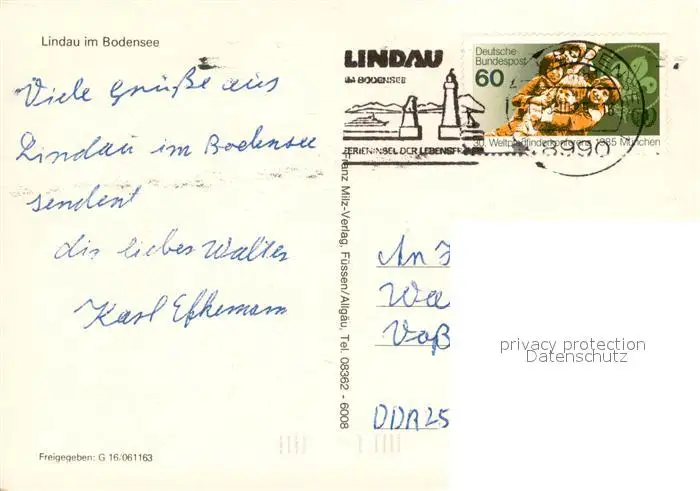 Lindau im Bodensee
Viele Grüße aus
Lindau im Bodensee
sendent
dir lieber Walter
Karl
Freigegeben: G 16/061163
Franz Milz-Verlag, Füssen/Allgäu, Tel. 08362 - 6008
LINDAU
IM BODENSEE
FERIENINSEL DER LEBENSFREUDE
Deutsche
Bundespost
60
30. Weltpfadfinderkonferenz 1985 München
8990
An
Wa
Voß
DDR 25
privacy protection
Datenschutz